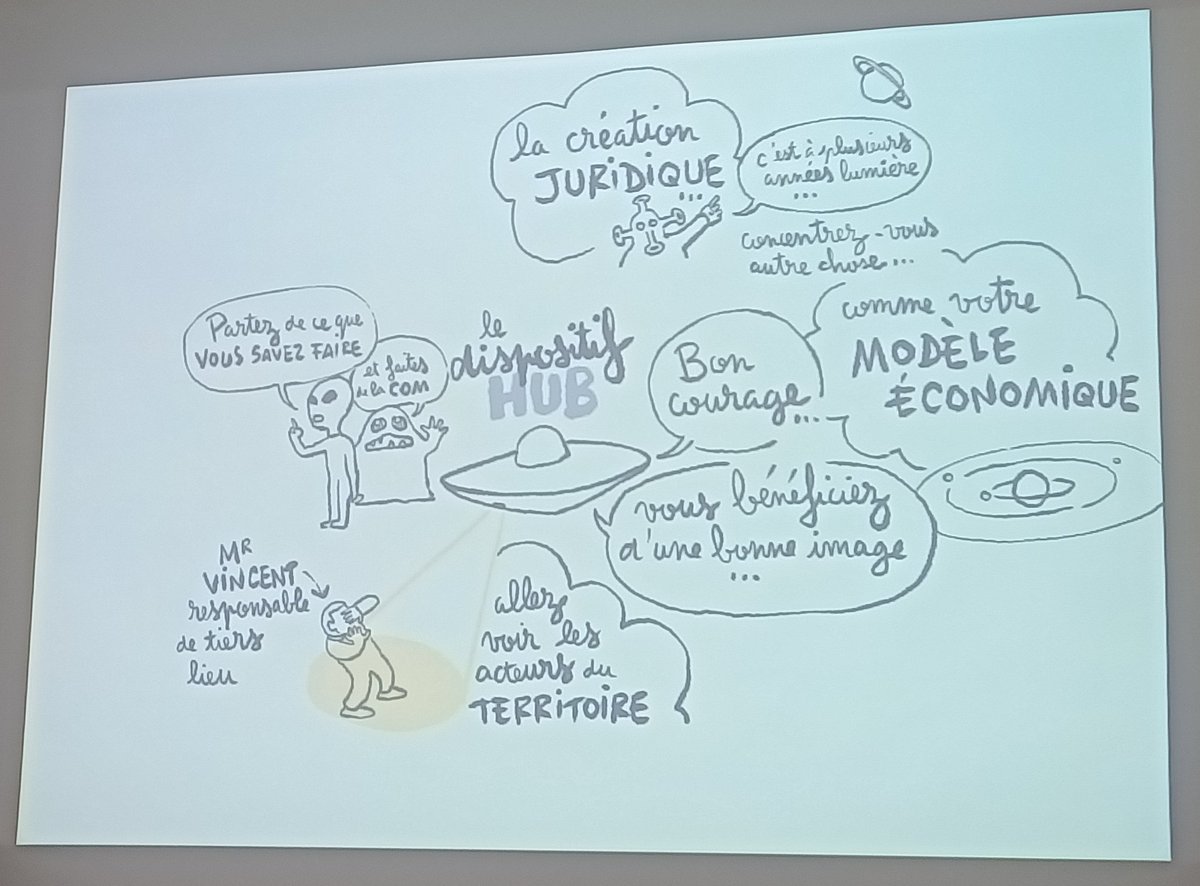 la création
JURIDIQUE
...
c'est à plusieurs
années lumière
...
concentrez-vous
autre chose...
comme votre
MODÈLE
ÉCONOMIQUE
Partez de ce que
VOUS SAVEZ FAIRE
et faites
de la COM
le
dispositif
HUB
Bon
courage
...
vous bénéficiez
d'une bonne image
...
allez
voir les
acteurs du
TERRITOIRE
MR
VINCENT
responsable
de tiers
lieu